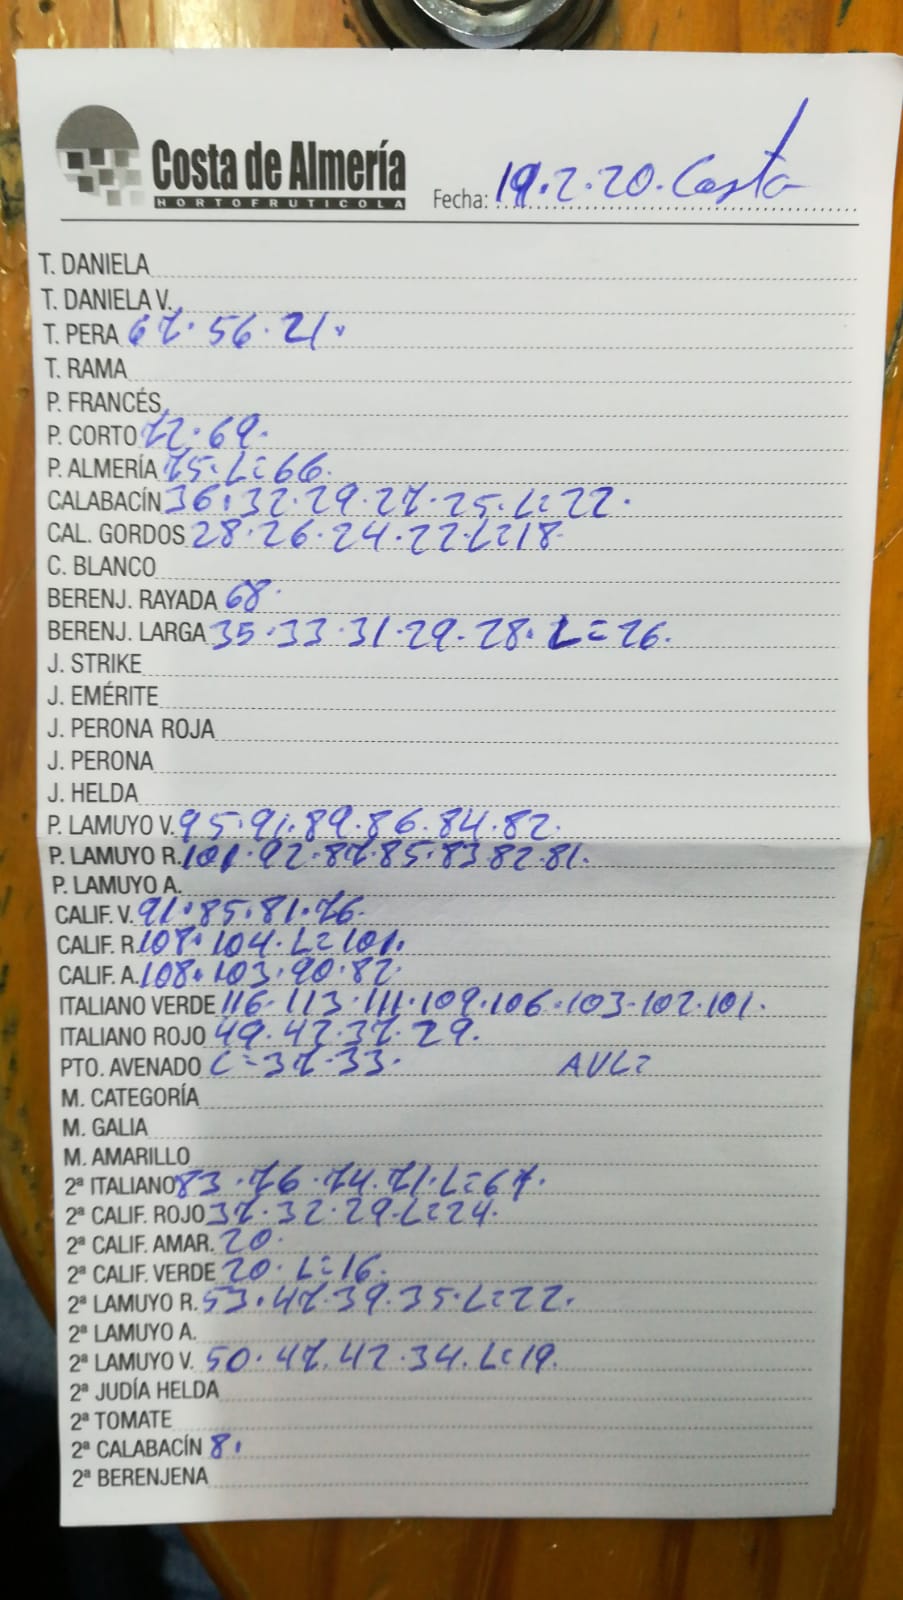 Costa de Almería
HORTOFRUTICOLA
Fecha: 19.2.20. Costa
T. DANIELA
T. DANIELA V.
T. PERA 67. 56. 21.
T. RAMA
P. FRANCÉS
P. CORTO 72. 69.
P. ALMERÍA 75. L=66.
CALABACÍN 36. 32. 29. 27. 25. L=22.
CAL. GORDOS 28. 26. 24. 22. L=18.
C. BLANCO
BERENJ. RAYADA 68.
BERENJ. LARGA 35. 33. 31. 29. 28. L=26.
J. STRIKE
J. EMÉRITE
J. PERONA ROJA
J. PERONA
J. HELDA
P. LAMUYO V. 95. 91. 89. 86. 84. 82.
P. LAMUYO R. 101. 92. 87. 85. 83. 82. 81.
P. LAMUYO A.
CALIF. V. 91. 85. 81. 76.
CALIF. R. 108. 104. L=101.
CALIF. A. 108. 103. 90. 82.
ITALIANO VERDE 116. 113. 111. 109. 106. 103. 102. 101.
ITALIANO ROJO 49. 47. 37. 29.
PTO. AVENADO C=37. 33. AVL=
M. CATEGORÍA
M. GALIA
M. AMARILLO
2ª ITALIANO 83. 76. 74. 71. L=67.
2ª CALIF. ROJO 37. 32. 29. L=24.
2ª CALIF. AMAR. 20.
2ª CALIF. VERDE 20. L=16.
2ª LAMUYO R. 53. 47. 39. 35. L=22.
2ª LAMUYO A.
2ª LAMUYO V. 50. 47. 42. 34. L=19.
2ª JUDÍA HELDA
2ª TOMATE
2ª CALABACÍN 8.
2ª BERENJENA